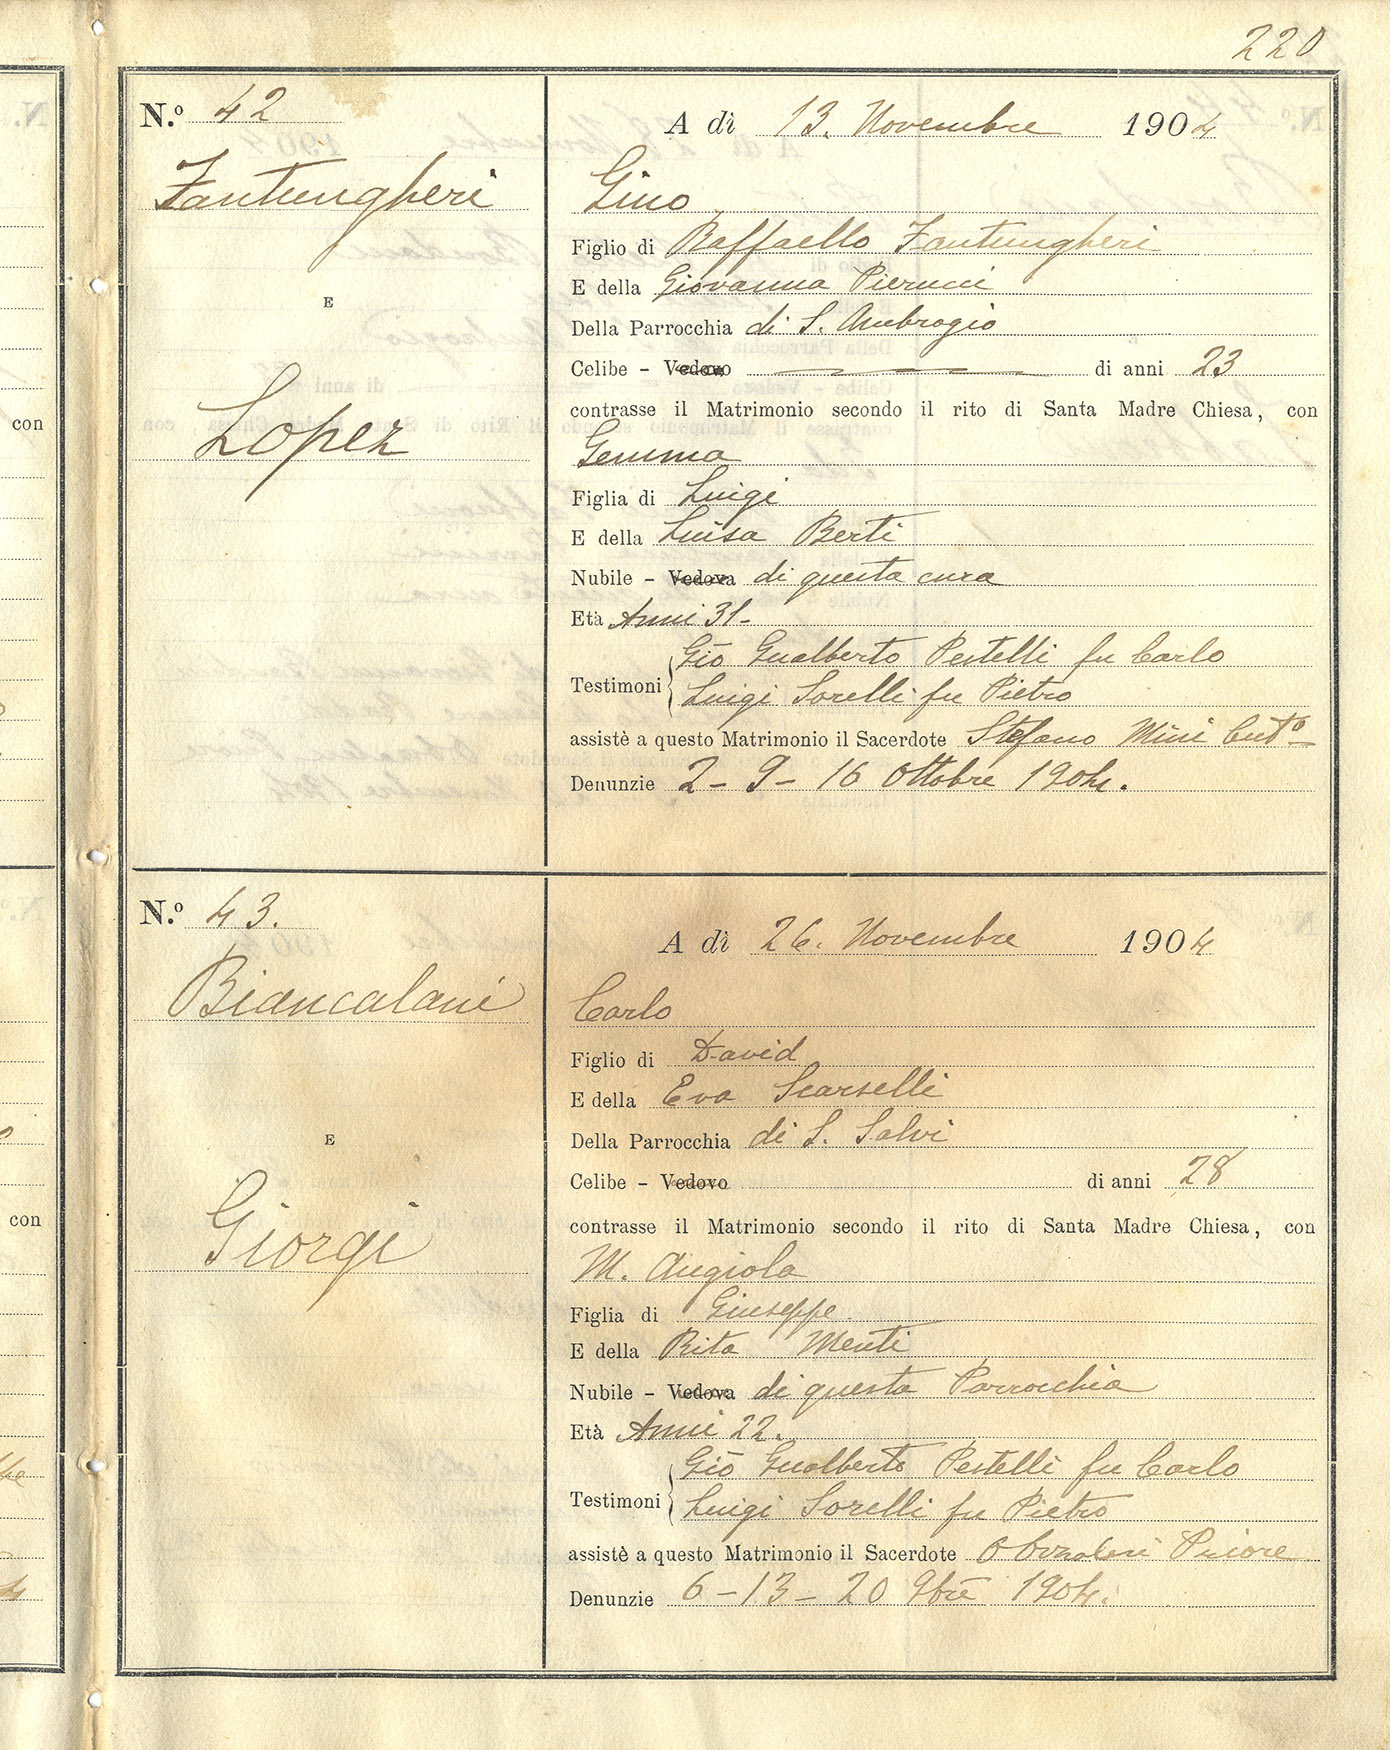 220
N.º 42
Fantungheri
E
Lopez
A dì 13. Novembre 1904
Gino
Figlio di Raffaello Fantungheri
E della Giovanna Pierucci
Della Parrocchia di S. Ambrogio
Celibe - Vedovo di anni 23
contrasse il Matrimonio secondo il rito di Santa Madre Chiesa, con
Gemma
Figlia di Luigi
E della Luisa Berti
Nubile - Vedova di questa cura
Età Anni 31-
Testimoni
Gio Gualberto Pestelli fu Carlo
Luigi Sorelli fu Pietro
assistè a questo Matrimonio il Sacerdote Stefano Mini Cutº
Denunzie 2 - 9 - 16 Ottobre 1904.
N.º 43.
Biancalani
E
Giorgi
A dì 26. Novembre 1904
Carlo
Figlio di David
E della Eva Scarselli
Della Parrocchia di S. Salvi
Celibe - Vedovo di anni 28
contrasse il Matrimonio secondo il rito di Santa Madre Chiesa, con
M. Angiola
Figlia di Giuseppe
E della Rita Menti
Nubile - Vedova di questa Parrocchia
Età Anni 22.
Testimoni
Gio Gualberto Pestelli fu Carlo
Luigi Sorelli fu Pietro
assistè a questo Matrimonio il Sacerdote Priore
Denunzie 6 - 13 - 20 9bre 1904.
con
con